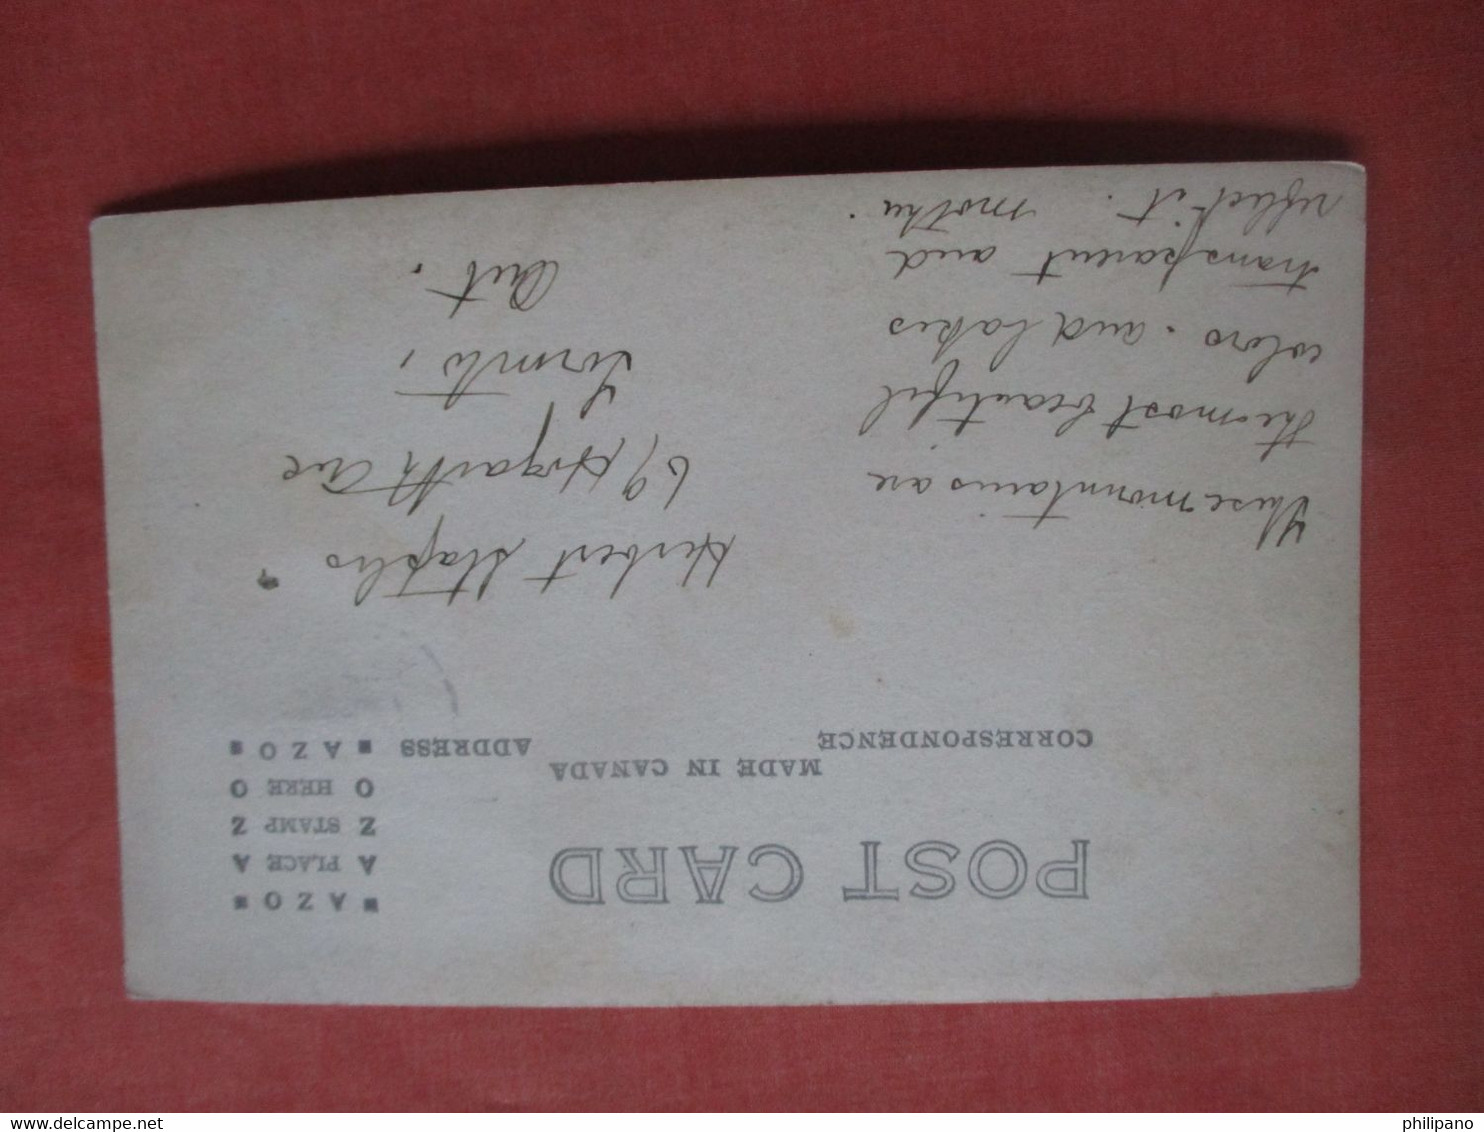 POST CARD
MADE IN CANADA
CORRESPONDENCE
ADDRESS
▪ A Z O ▪
A PLACE A
Z STAMP Z
O HERE O
▪ A Z O ▪
These mountains are
the most beautiful
colors. and lakes
transparent and
reflect it. mother.
Herbert Staples
69 Hogarth Ave
Toronto,
Ont.
philipano